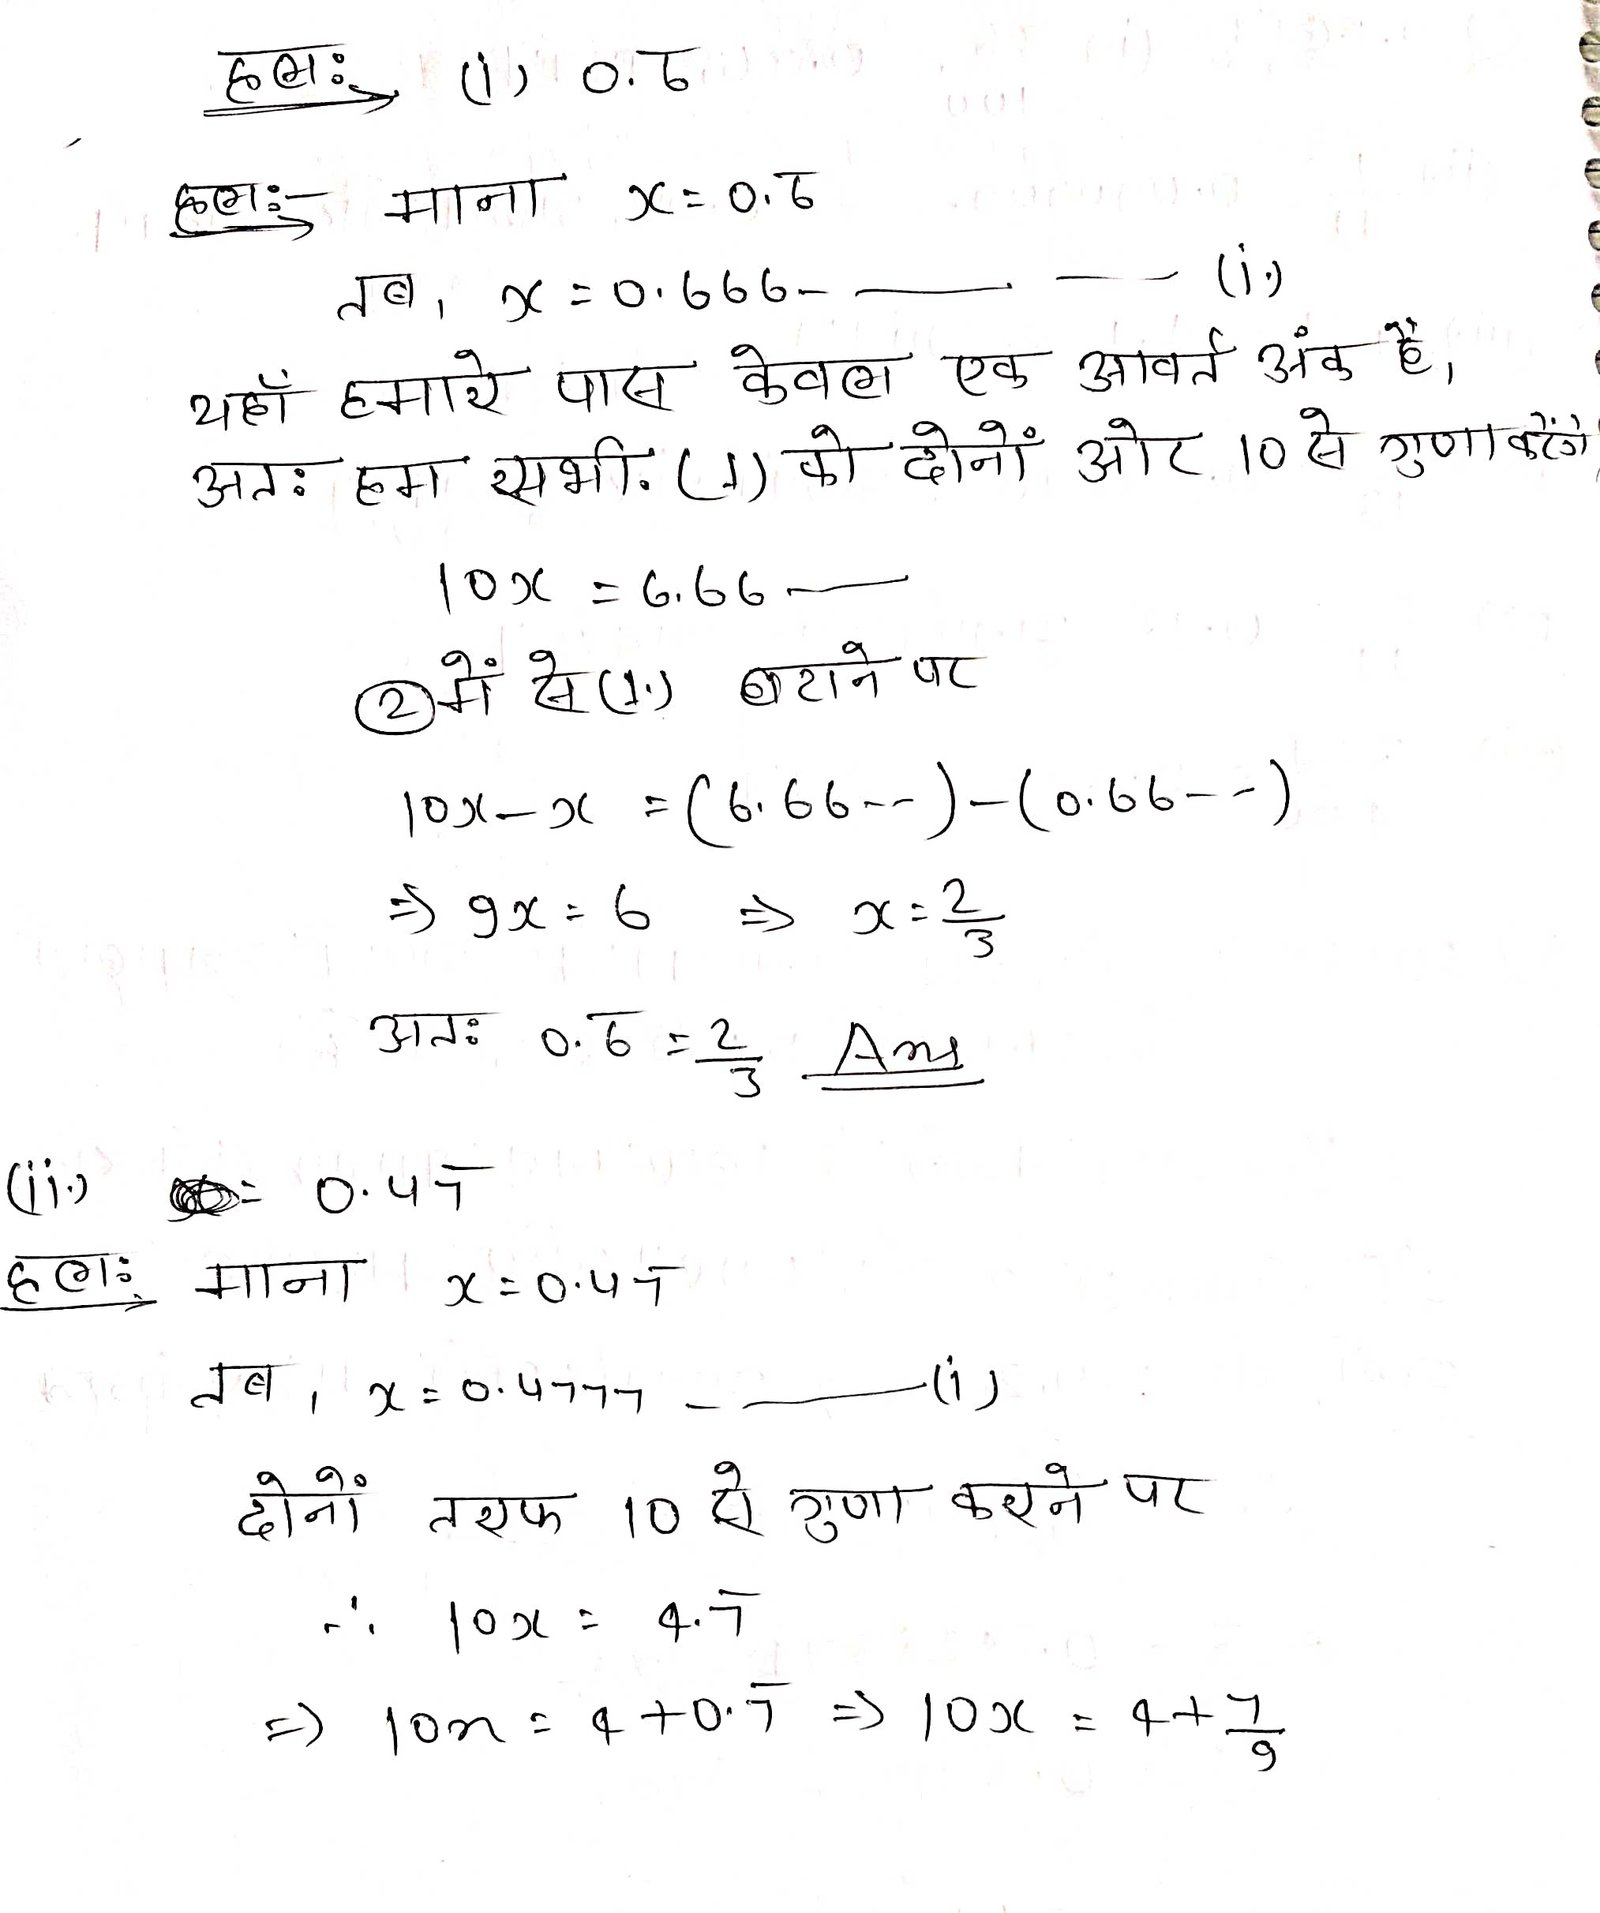 हलः (i) 0.6̅
हलः- माना x = 0.6̅
तब, x = 0.666- —— — (i.)
यहाँ हमारे पास केवल एक आवर्त अंक है,
अतः हम समी. (1) को दोनों ओर 10 से गुणा करेंगे
10x = 6.66 —
② में से (1.) घटाने पर
10x - x = (6.66--) - (0.66--)
⇒ 9x = 6 ⇒ x = 2/3
अतः 0.6̅ = 2/3 Ans
(ii.) = 0.47̅
हलः माना x = 0.47̅
तब, x = 0.4777 - —— (i)
दोनों तरफ 10 से गुणा करने पर
∴ 10x = 4.7̅
⇒ 10x = 4 + 0.7̅ ⇒ 10x = 4 + 7/9